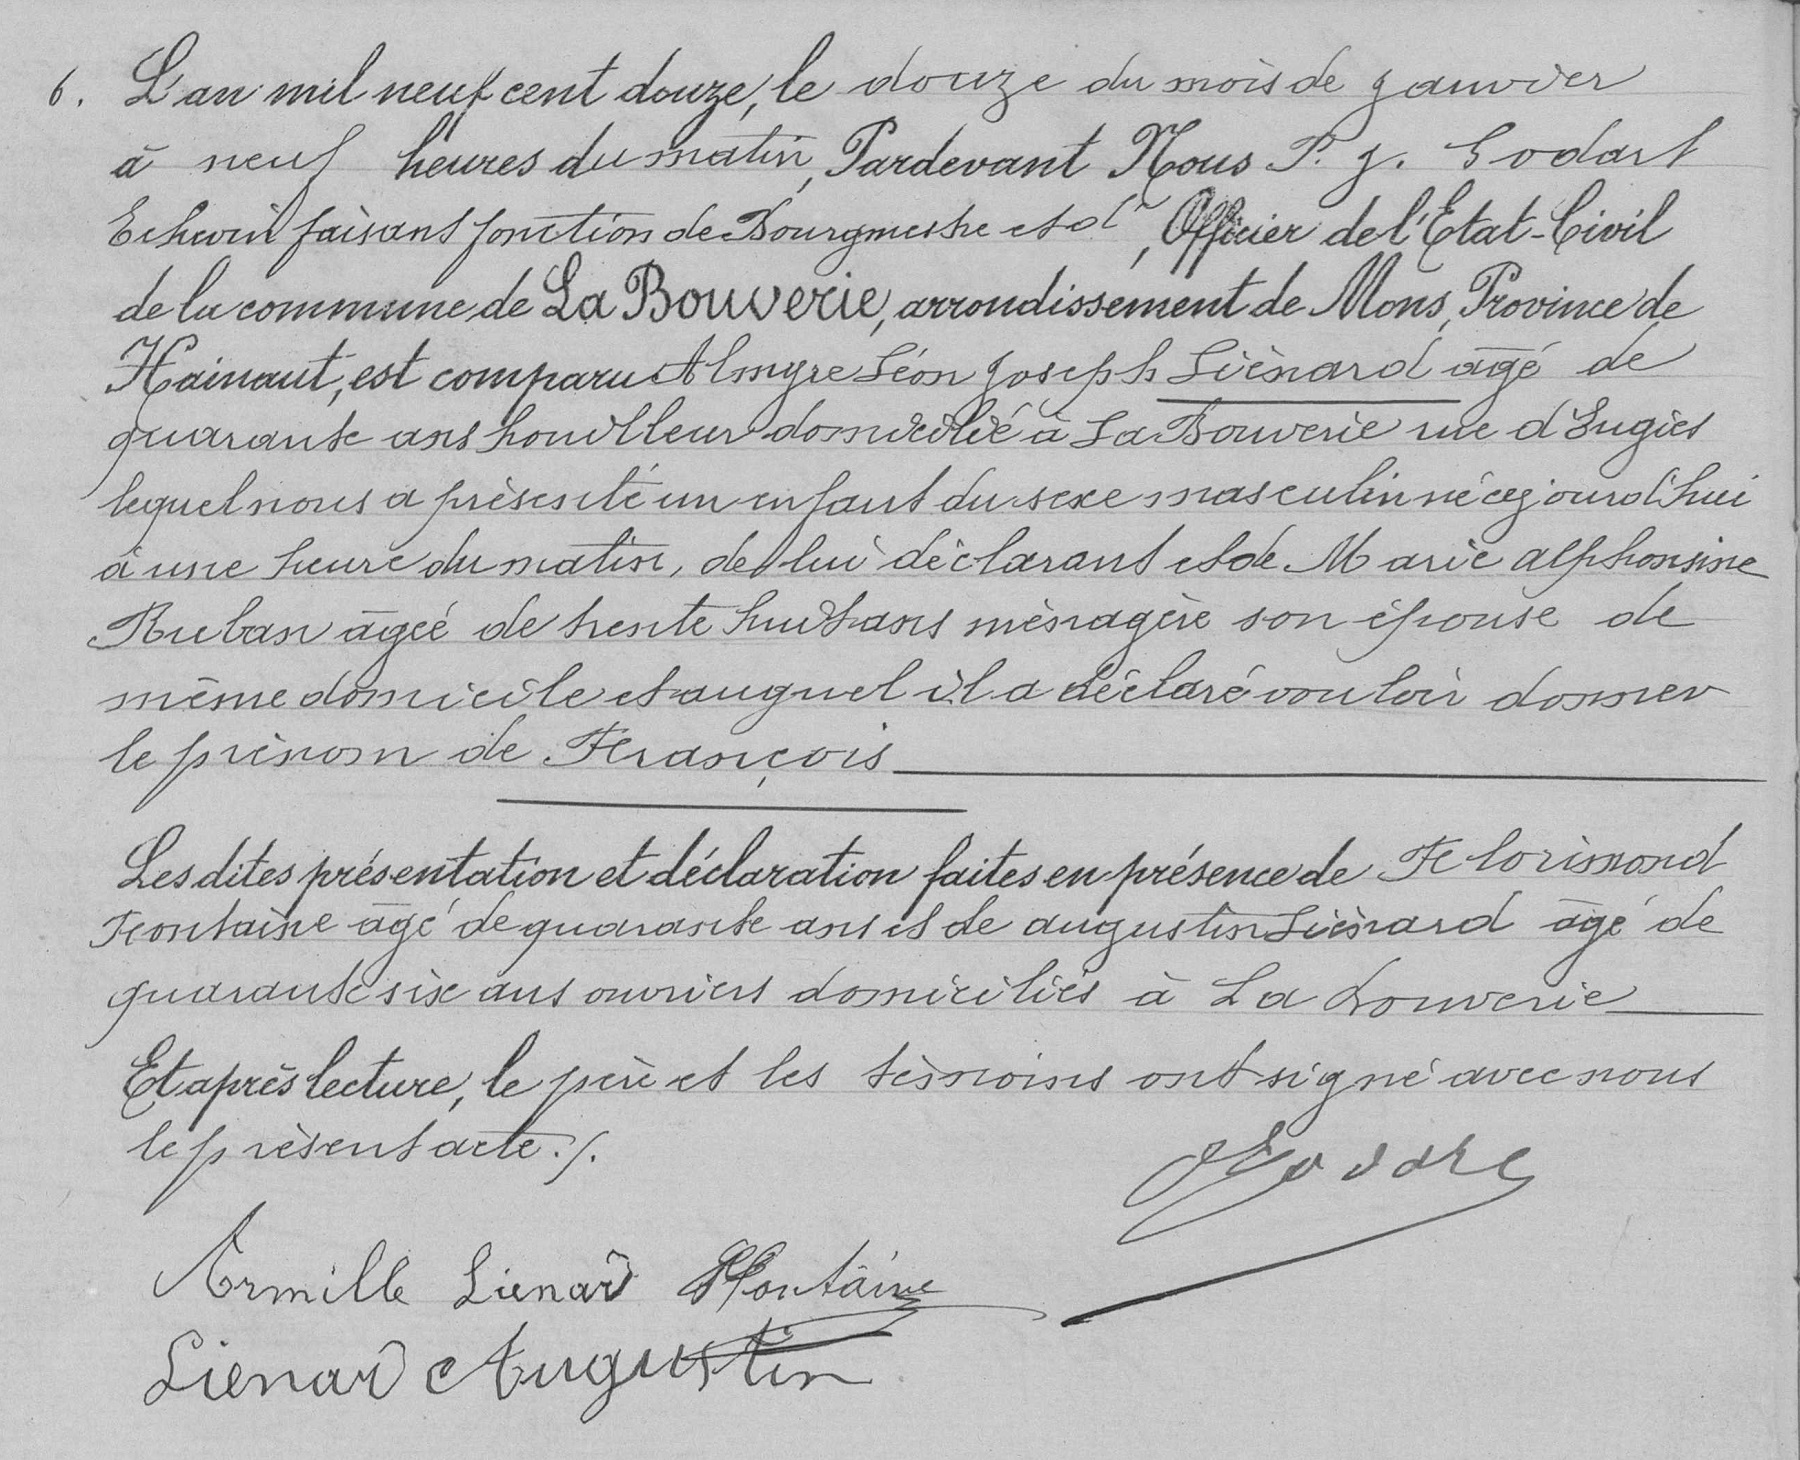 6. L'an mil neuf cent douze, le douze du mois de Janvier
à neuf heures du matin, Pardevant Nous P. J. Godart
Echevin faisant fonction de Bourgmestre et d', Officier de l'Etat-Civil
de la commune de La Bouverie, arrondissement de Mons, Province de
Hainaut, est comparu Almyre Léon Joseph Liènard âgé de
quarante ans houilleur domicilié à La Bouverie rue d'Eugies
lequel nous a présenté un enfant du sexe masculin né cejourd'hui
à une heure du matin, de lui déclarant et de Marie Alphonsine
Ruban âgée de trente huit ans ménagère son épouse de
même domicile et auquel il a déclaré vouloir donner
le prénom de François
Les dites présentation et déclaration faites en présence de Florimond
Fontaine âgé de quarante ans et de Augustin Liènard âgé de
quarante six ans ouvriers domiciliés à La Bouverie
Et après lecture, le père et les témoins ont signé avec nous
le présent acte./.
Armille Lienard Fontaine
Lienard Augustin